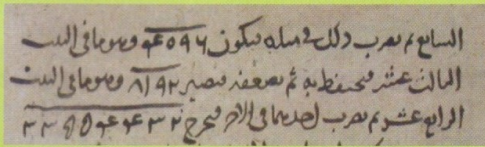 السابع ثم يضرب ذلك في مثله فيكون ۴٠٩٦ وهو ما في البيت
الثالث عشر فيحتفظ به ثم يضعفه فيصير ٨١٩٢ وهو ما في البيت
الرابع عشر ثم يضرب احدهما في الاخر فيخرج ٣٣٥٥۴۴٣٢